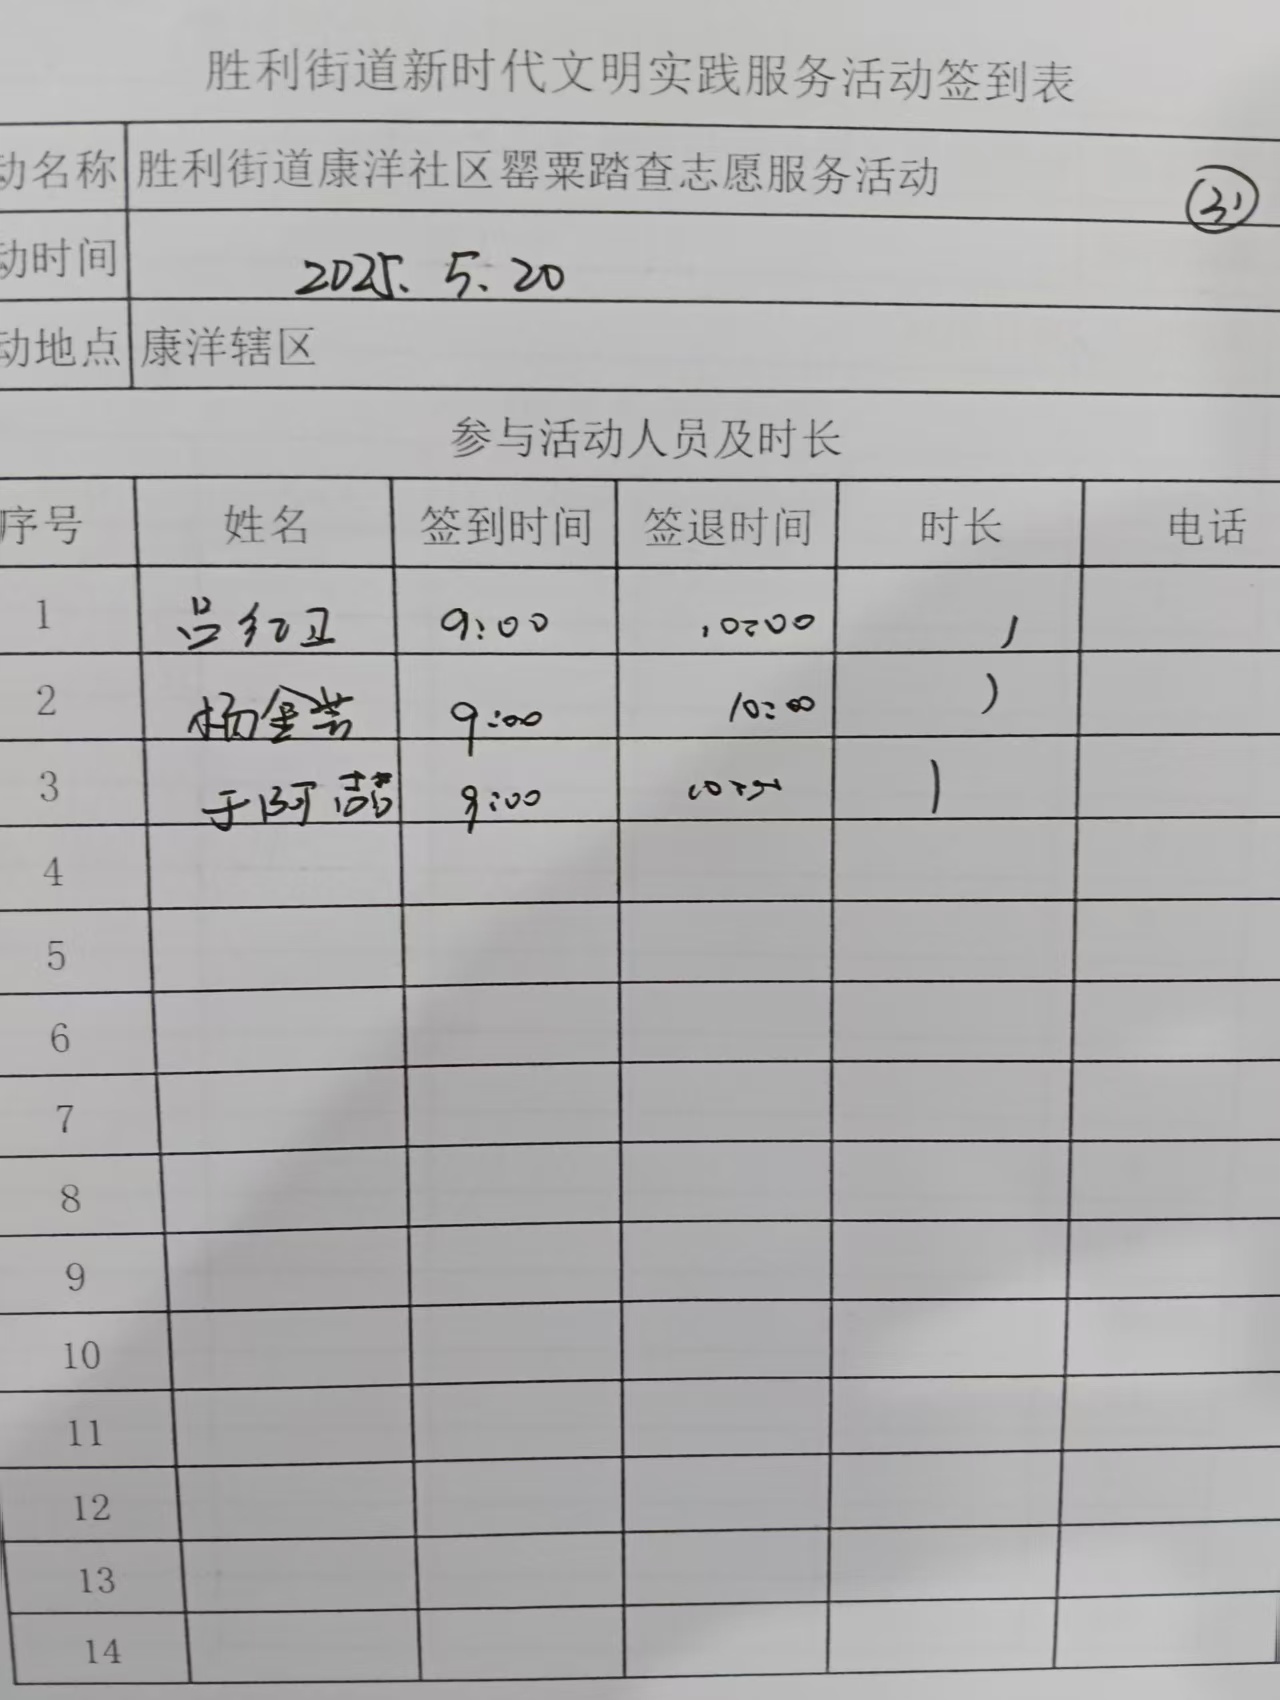 胜利街道新时代文明实践服务活动签到表
动名称 胜利街道康洋社区罂粟踏查志愿服务活动
动时间 2025.5.20
动地点 康洋辖区
参与活动人员及时长
序号 姓名 签到时间 签退时间 时长 电话
1 吕红卫 9:00 10:00 1
2 杨金芸 9:00 10:00 1
3 于阿喆 9:00 1
4
5
6
7
8
9
10
11
12
13
14